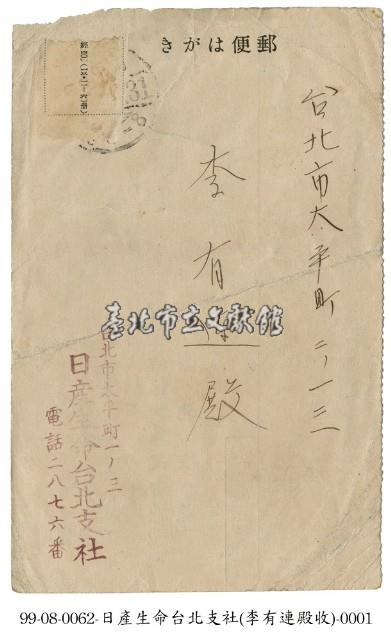 郵便はがき
台北市太平町二ノ一三
李有連殿
臺北市立文獻館
台北市太平町一ノ三
日產生命台北支社
電話二八七六番
99-08-0062-日產生命台北支社(李有連殿收)-0001